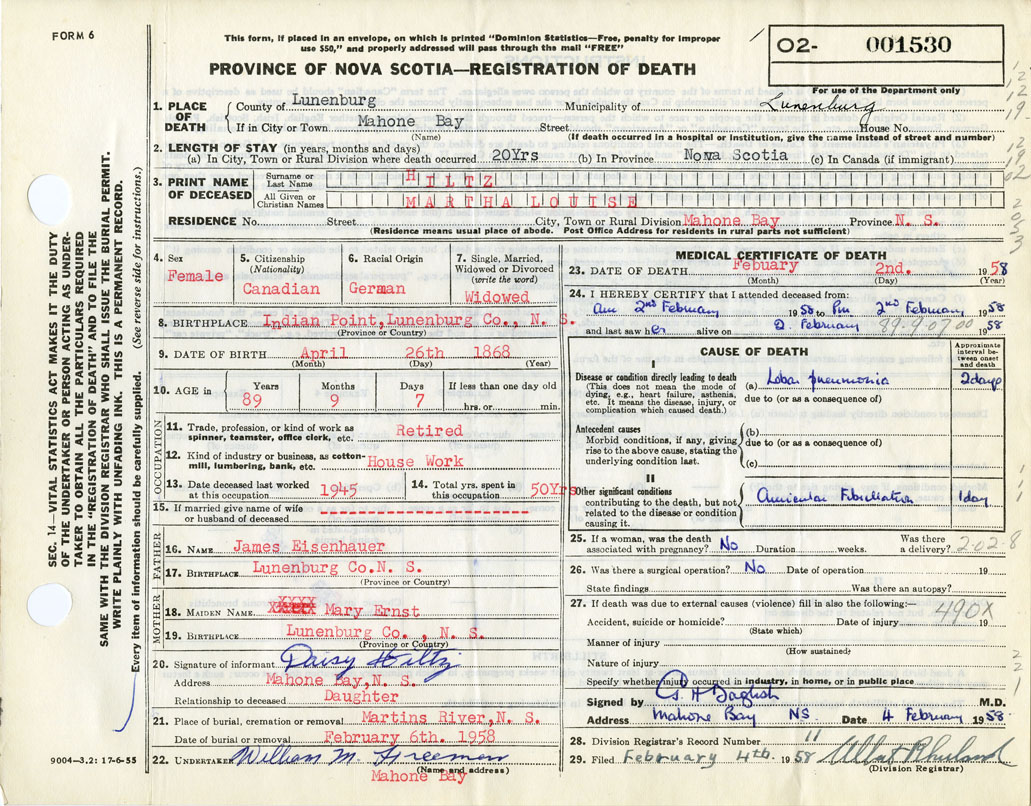 FORM 6
This form, if placed in an envelope, on which is printed "Dominion Statistics—Free, penalty for improper
use $50," and properly addressed will pass through the mail "FREE"
O2- 001530
PROVINCE OF NOVA SCOTIA—REGISTRATION OF DEATH
For use of the Department only
1. PLACE OF DEATH
County of Lunenburg Municipality of Lunenburg
If in City or Town Mahone Bay Street House No.
(Name) (If death occurred in a hospital or institution, give the name instead of street and number)
2. LENGTH OF STAY (in years, months and days)
(a) In City, Town or Rural Division where death occurred 20Yrs (b) In Province Nova Scotia (c) In Canada (if immigrant)
3. PRINT NAME OF DECEASED
Surname or Last Name HILTZ
All Given or Christian Names MARTHA LOUISE
RESIDENCE No. Street City, Town or Rural Division Mahone Bay Province N. S.
(Residence means usual place of abode. Post Office Address for residents in rural parts not sufficient)
4. Sex
Female
5. Citizenship
(Nationality)
Canadian
6. Racial Origin
German
7. Single, Married,
Widowed or Divorced
(write the word)
Widowed
8. BIRTHPLACE Indian Point, Lunenburg Co., N. S.
(Province or Country)
9. DATE OF BIRTH April 26th 1868
(Month) (Day) (Year)
10. AGE in
Years Months Days If less than one day old
89 9 7 hrs. or min.
OCCUPATION
11. Trade, profession, or kind of work as
spinner, teamster, office clerk, etc. Retired
12. Kind of industry or business, as cotton-
mill, lumbering, bank, etc. House Work
13. Date deceased last worked
at this occupation 1945
14. Total yrs. spent in
this occupation 50Yrs
15. If married give name of wife
or husband of deceased
FATHER
16. NAME James Eisenhauer
17. BIRTHPLACE Lunenburg Co.N. S.
(Province or Country)
MOTHER
XXXX
18. MAIDEN NAME Mary Ernst
19. BIRTHPLACE Lunenburg Co. , N. S.
(Province or Country)
20. Signature of informant Daisy Hiltz
Address Mahone Bay,N. S.
Relationship to deceased Daughter
21. Place of burial, cremation or removal Martins River,N. S.
Date of burial or removal February 6th. 1958
22. UNDERTAKER William M. Freeman
(Name and address)
Mahone Bay
MEDICAL CERTIFICATE OF DEATH
23. DATE OF DEATH Febuary 2nd. 1958
(Month) (Day) (Year)
24. I HEREBY CERTIFY that I attended deceased from:
Am 2nd February 1958 to Pm 2nd February 1958
and last saw her alive on 2. February 1958
89-9-07 00
CAUSE OF DEATH
Approximate
interval be-
tween onset
and death
I
Disease or condition directly leading to death
(This does not mean the mode of
dying, e.g., heart failure, asthenia,
etc. It means the disease, injury, or
complication which caused death.)
(a) Lobar pneumonia 2 days
due to (or as a consequence of)
Antecedent causes
Morbid conditions, if any, giving
rise to the above cause, stating the
underlying condition last.
(b)
due to (or as a consequence of)
(c)
II
Other significant conditions
contributing to the death, but not
related to the disease or condition
causing it.
Auricular Fibrillation 1 day
25. If a woman, was the death
associated with pregnancy? No Duration weeks. Was there
a delivery? 2-02-8
26. Was there a surgical operation? No Date of operation 19
State findings Was there an autopsy?
27. If death was due to external causes (violence) fill in also the following:—
490X
Accident, suicide or homicide? Date of injury 19
(State which)
Manner of injury
(How sustained)
Nature of injury
Specify whether injury occurred in industry, in home, or in public place
Signed by G. H Daglish M.D.
Address Mahone Bay NS Date 4 February 1958.
28. Division Registrar's Record Number 11
29. Filed February 4th. 1958
(Division Registrar)
SEC. 14—VITAL STATISTICS ACT MAKES IT THE DUTY
OF THE UNDERTAKER OR PERSON ACTING AS UNDER-
TAKER TO OBTAIN ALL THE PARTICULARS REQUIRED
IN THE "REGISTRATION OF DEATH" AND TO FILE THE
SAME WITH THE DIVISION REGISTRAR WHO SHALL ISSUE THE BURIAL PERMIT.
WRITE PLAINLY WITH UNFADING INK. THIS IS A PERMANENT RECORD.
Every item of information should be carefully supplied. (See reverse side for instructions.)
9004—3.2: 17-6-55